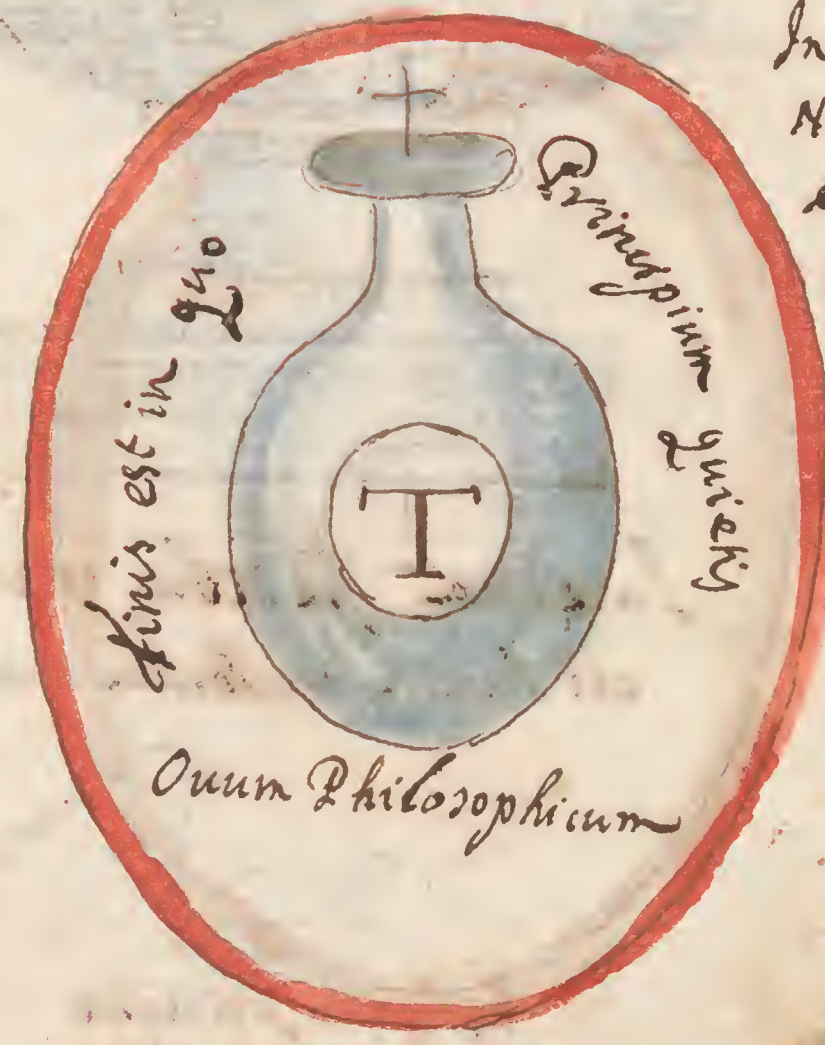 Finis est in quo
Principium quietis
T
Ovum Philosophicum
In